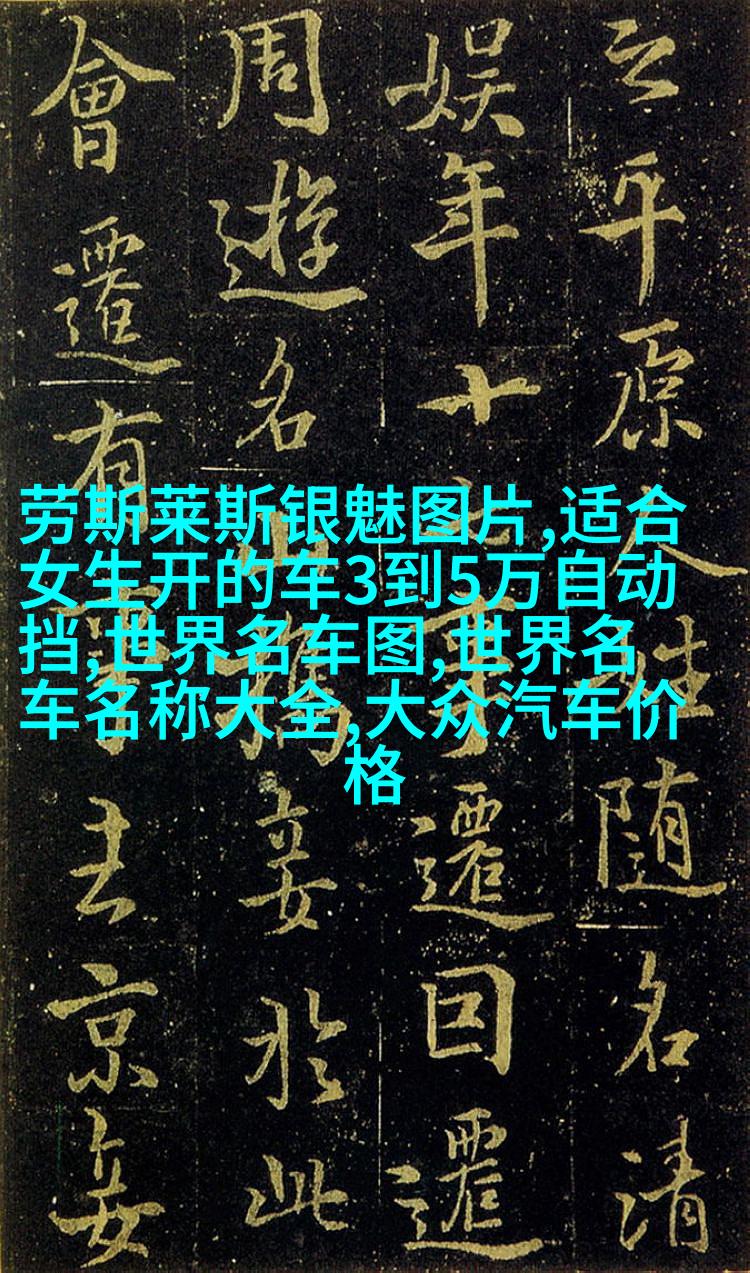 劳斯莱斯银魅图片,适合
女生开的车3到5万自动
挡,世界名车图,世界名
车名称大全,大众汽车价
格
云平原人姓随名清
娱年十七事遷因遷
周遊名山攜妾於此
會遷有事去京妾